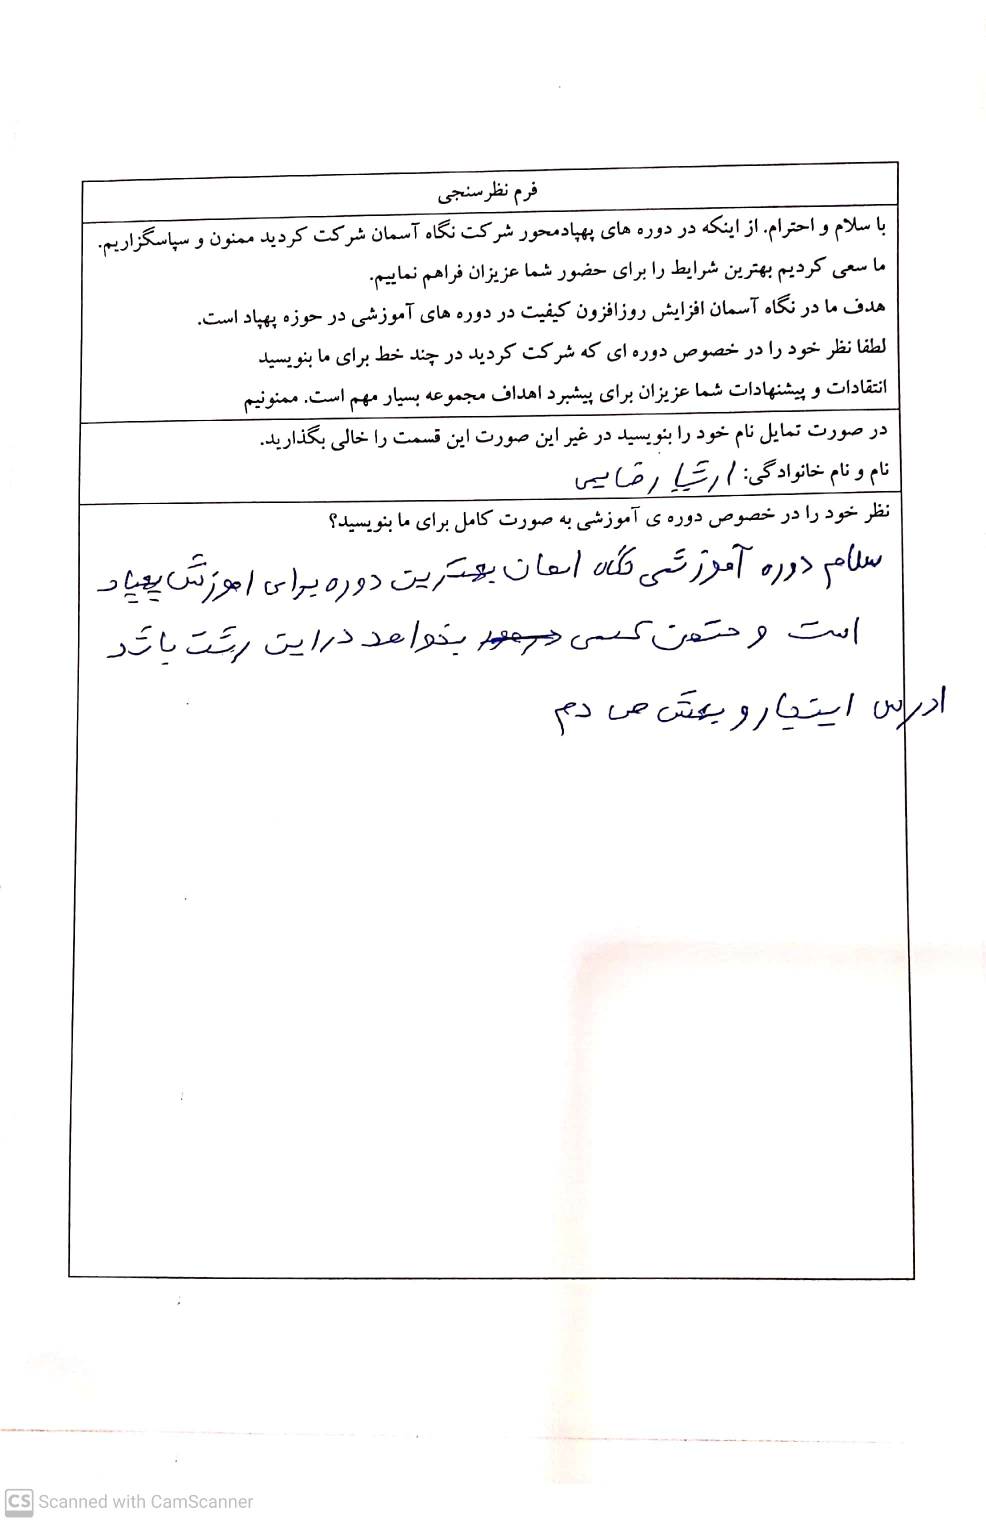 فرم نظرسنجی
با سلام و احترام. از اینکه در دوره های پهپادمحور شرکت نگاه آسمان شرکت کردید ممنون و سپاسگزاریم.
ما سعی کردیم بهترین شرایط را برای حضور شما عزیزان فراهم نماییم.
هدف ما در نگاه آسمان افزایش روزافزون کیفیت در دوره های آموزشی در حوزه پهپاد است.
لطفا نظر خود را در خصوص دوره ای که شرکت کردید در چند خط برای ما بنویسید
انتقادات و پیشنهادات شما عزیزان برای پیشبرد اهداف مجموعه بسیار مهم است. ممنونیم
در صورت تمایل نام خود را بنویسید در غیر این صورت این قسمت را خالی بگذارید.
نام و نام خانوادگی: ارشیا رضایی
نظر خود را در خصوص دوره ی آموزشی به صورت کامل برای ما بنویسید؟
سلام دوره آموزشی نگاه اسمان بهترین دوره برای اموزش پهپاد
است و کسی بخواهد در این رشت باشد
ادرس اینجا رو بهش می دم
CS Scanned with CamScanner